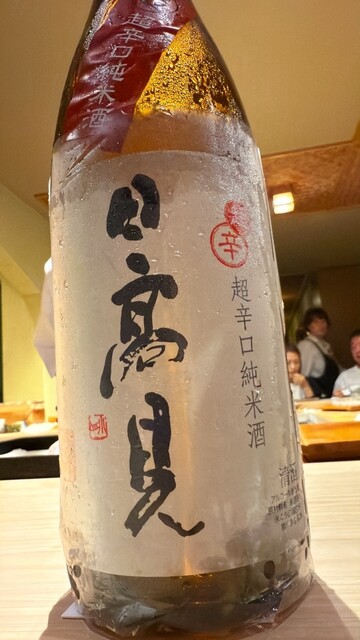 超辛口純米酒
日高見
辛
超辛口純米酒
清酒